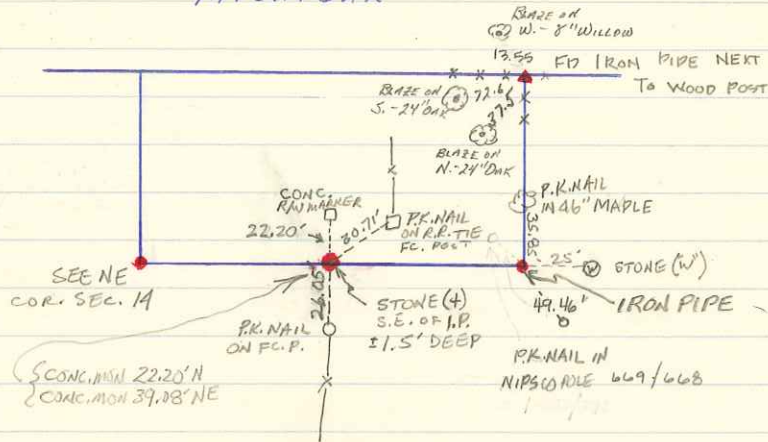 BLAZE ON
W. - 8" WILLOW
13.55
FD IRON PIPE NEXT
TO WOOD POST
BLAZE ON
S. - 24" OAK
72.6
37.5
BLAZE ON
N. - 24" OAK
CONC.
R/W MARKER
22.20'
30.71'
P.K. NAIL
ON R.R. TIE
FC. POST
P.K. NAIL
IN 46" MAPLE
35.85'
25'
W
STONE ("W")
SEE NE
COR. SEC. 14
26.05'
STONE (+)
S.E. OF I.P.
±1.5' DEEP
IRON PIPE
49.46'
P.K. NAIL
ON FC. P.
P.K. NAIL IN
NIPSCO POLE 669/668
CONC. MON 22.20' N
CONC. MON 39.08' NE